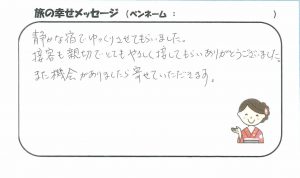 旅の幸せメッセージ (ペンネーム : )
静かな宿でゆっくりさせてもらいました。
接客も親切でとてもやさしく接してもらいありがとうございました。
また機会がありましたら寄せていただきます。